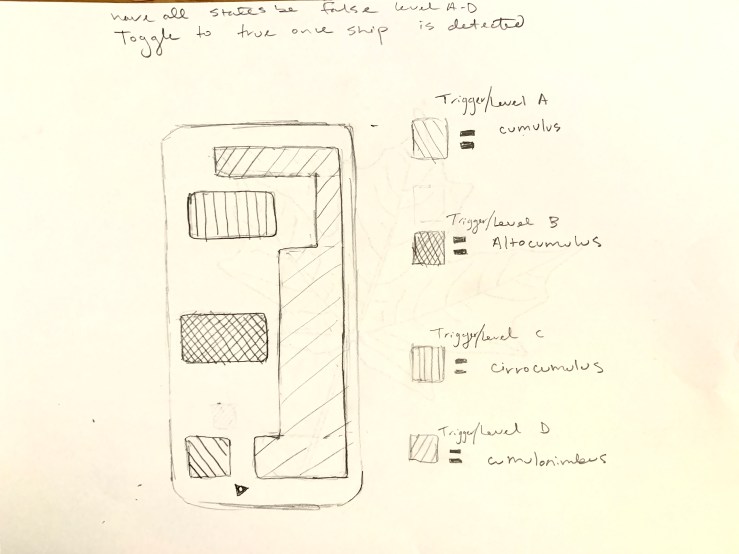 have all states be false level A-D
Toggle to true once ship is detected
Trigger/Level A
= cumulus
Trigger/Level B
= Altocumulus
Trigger/Level C
= cirrocumulus
Trigger/Level D
= cumulonimbus